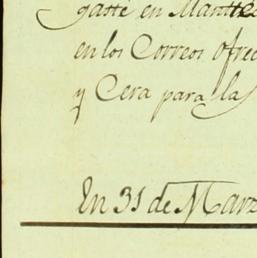 gasté en Mant
en los Correos ofrec
y Cera para la
En 31 de Marz